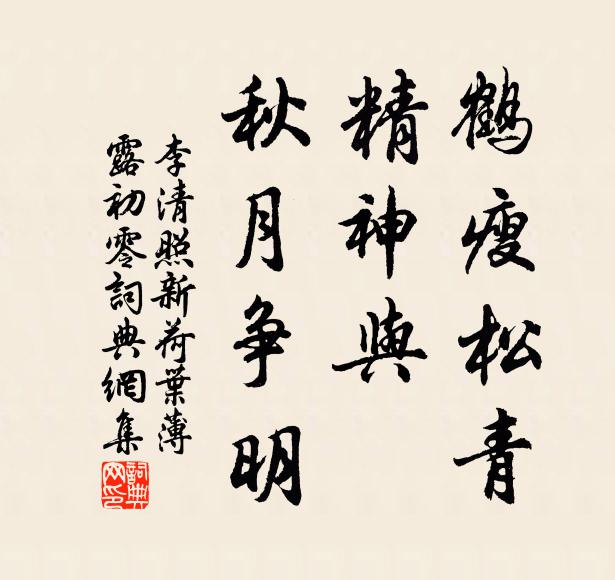 鶴瘦松青
精神與
秋月争明
李清照新荷葉薄
露初零詞典網集
詞典
网印